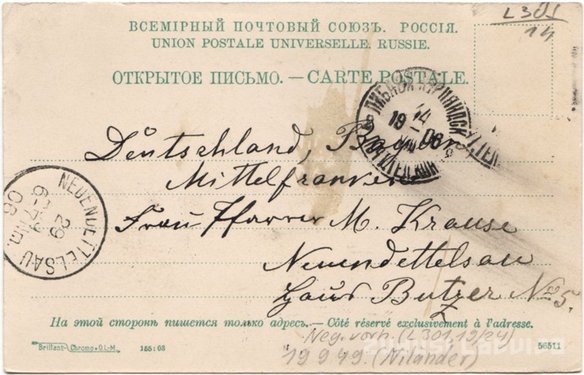 L301
14
ВСЕМІРНЫЙ ПОЧТОВЫЙ СОЮЗЪ. РОССІЯ.
UNION POSTALE UNIVERSELLE. RUSSIE.
ОТКРЫТОЕ ПИСЬМО. — CARTE POSTALE.
ЛИБАВА КУРЛЯНДСК
19 14 06
VII
Deutschland, Bayern
Mittelfranken
Frau Pfarrer M. Krause
Neuendettelsau
Haus Butzer No 5.
NEUENDETTELSAU
29
6-7 Nm.
06
На этой сторонѣ пишется только адресъ. — Côté réservé exclusivement à l'adresse.
Brillant-Chromo e O.L-M.
155:03
56511
Neg. vorh. (L301, 13/24)
19 9 49 (Niländer)